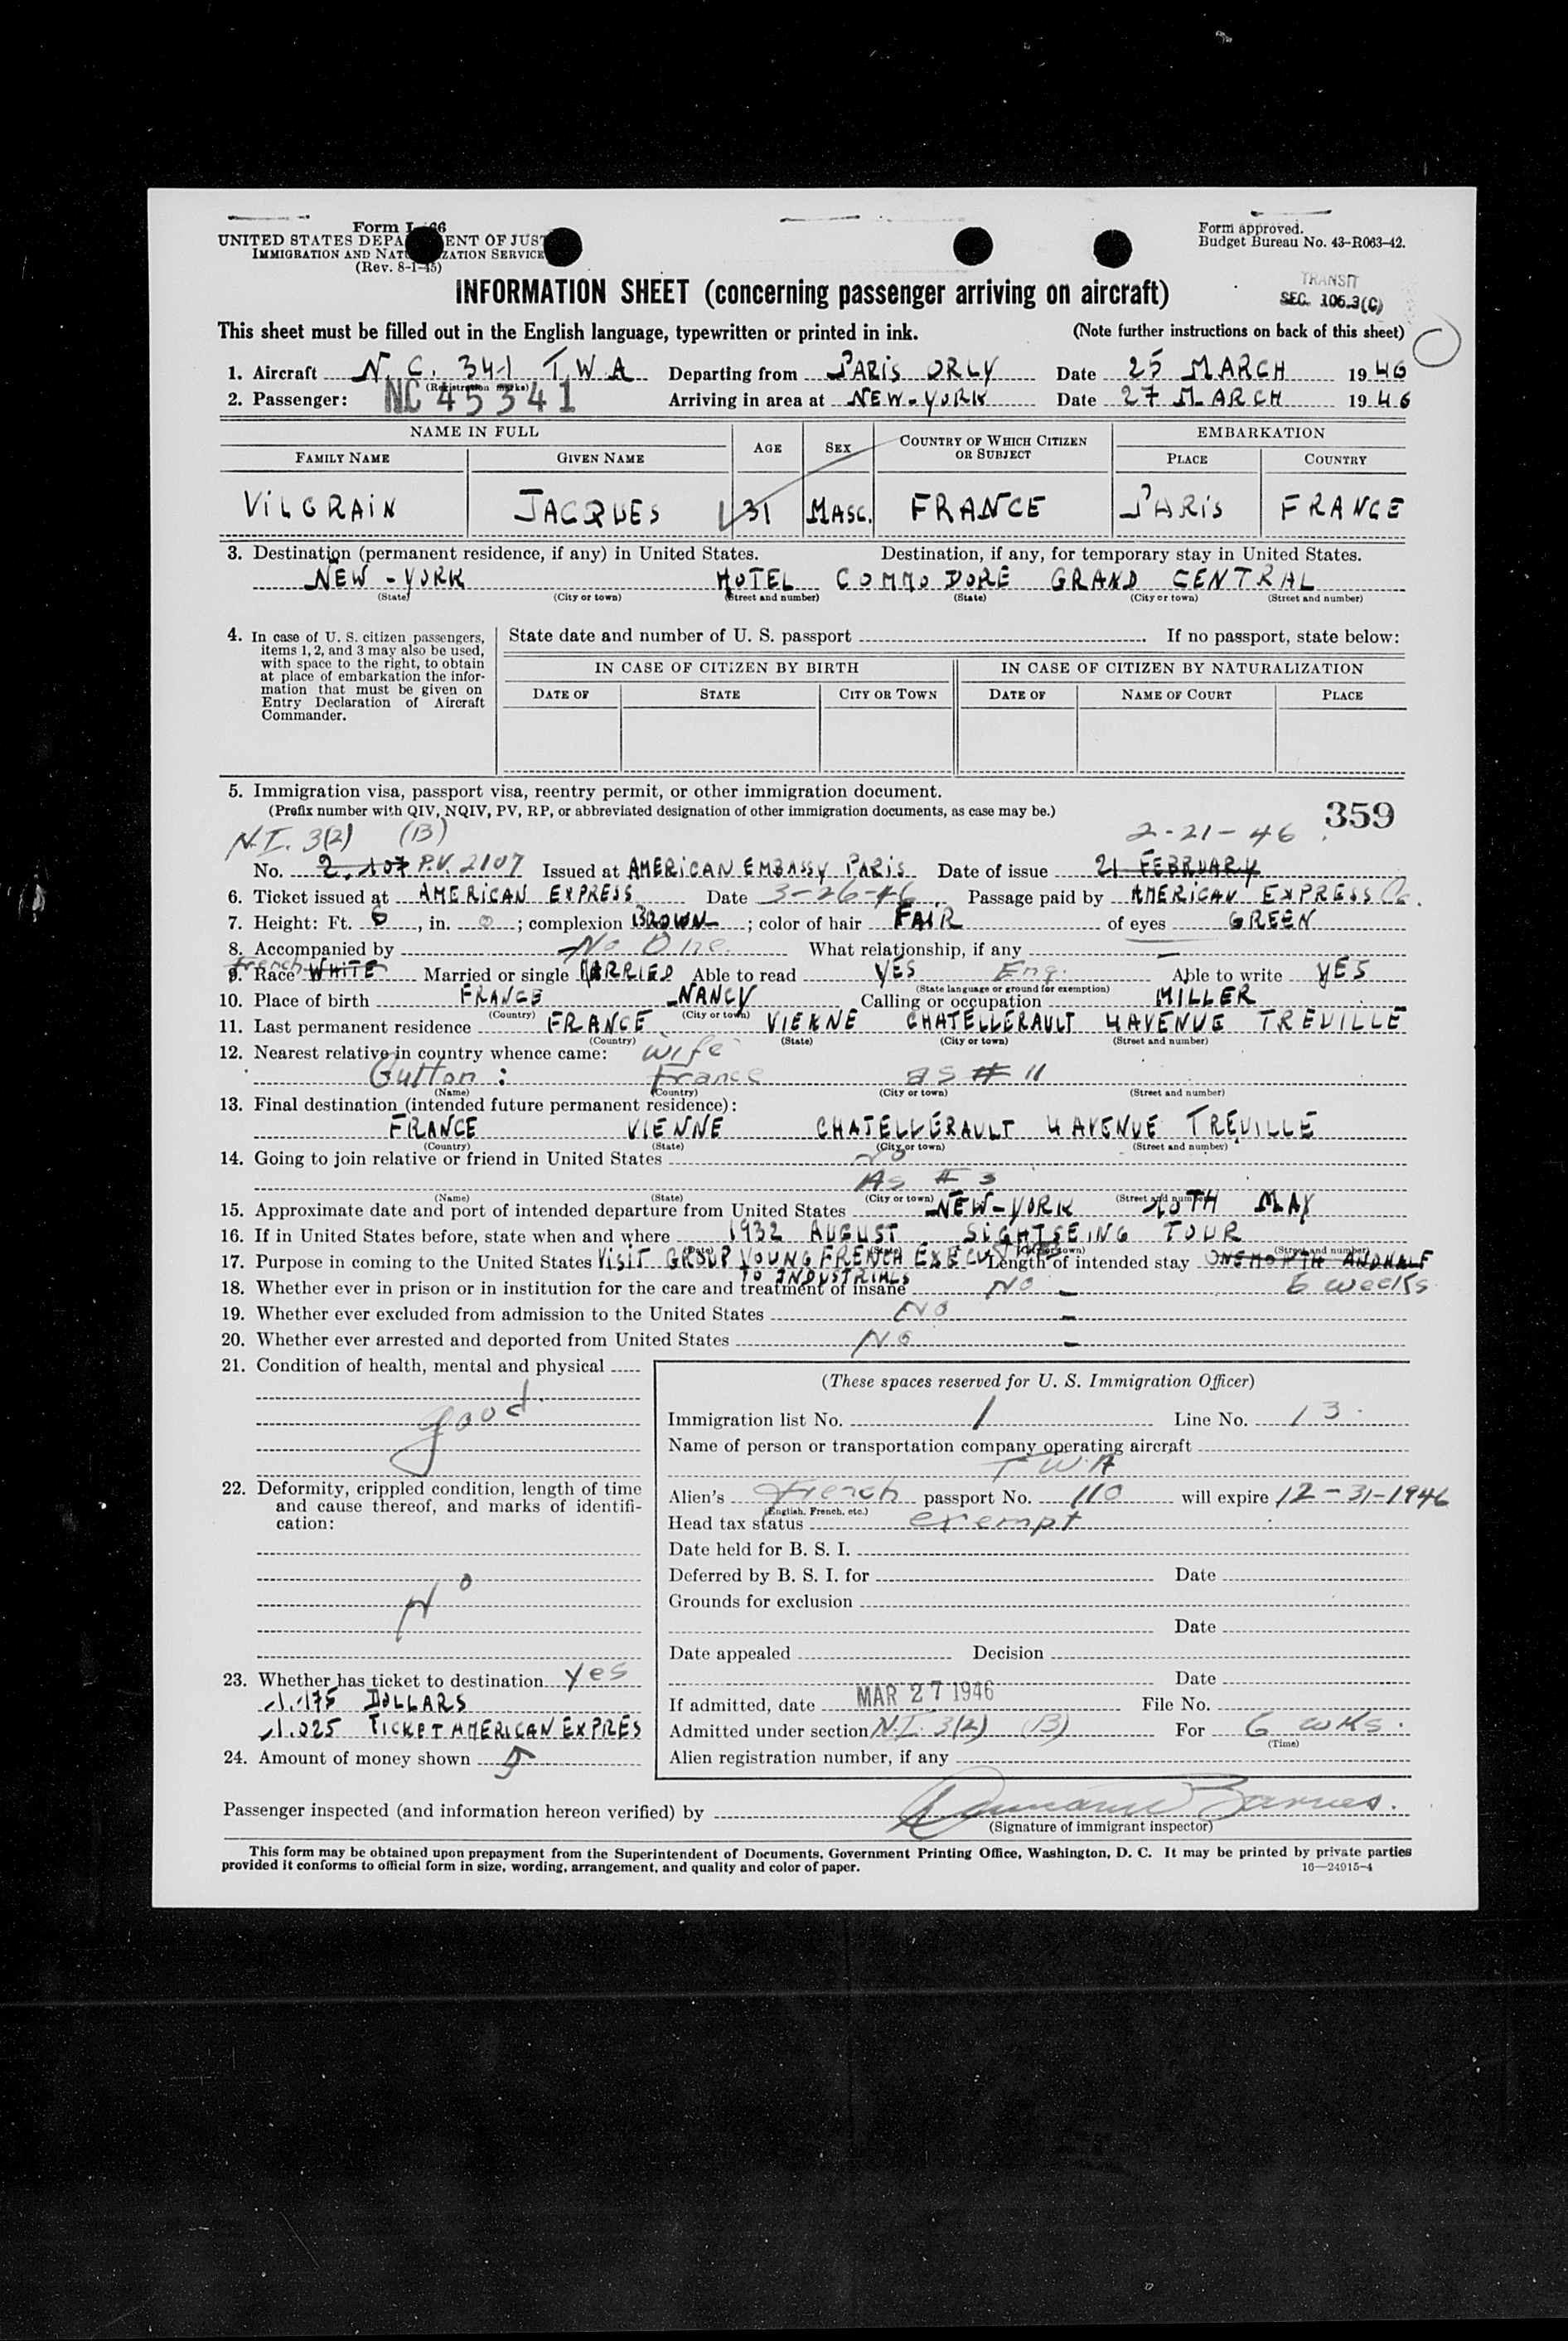 Form I-466
UNITED STATES DEPA ENT OF JUST
IMMIGRATION AND NATU ZATION SERVICE
(Rev. 8-1-45)
Form approved.
Budget Bureau No. 43-R063-42.
TRANSIT
SEC. 106.3(C)
INFORMATION SHEET (concerning passenger arriving on aircraft)
This sheet must be filled out in the English language, typewritten or printed in ink. (Note further instructions on back of this sheet)
1. Aircraft N. C. 341 T.W.A Departing from PARIS ORLY Date 25 MARCH 1946
(Registration marks)
2. Passenger: NC 45341 Arriving in area at NEW-YORK Date 27 MARCH 1946
NAME IN FULL AGE SEX COUNTRY OF WHICH CITIZEN OR SUBJECT EMBARKATION
FAMILY NAME GIVEN NAME PLACE COUNTRY
VILGRAIN JACQUES 31 MASC. FRANCE PARIS FRANCE
3. Destination (permanent residence, if any) in United States. Destination, if any, for temporary stay in United States.
NEW-YORK HOTEL COMMODORE GRAND CENTRAL
(State) (City or town) (Street and number) (State) (City or town) (Street and number)
4. In case of U. S. citizen passengers, items 1, 2, and 3 may also be used, with space to the right, to obtain at place of embarkation the information that must be given on Entry Declaration of Aircraft Commander.
State date and number of U. S. passport If no passport, state below:
IN CASE OF CITIZEN BY BIRTH IN CASE OF CITIZEN BY NATURALIZATION
DATE OF STATE CITY OR TOWN DATE OF NAME OF COURT PLACE
5. Immigration visa, passport visa, reentry permit, or other immigration document.
(Prefix number with QIV, NQIV, PV, RP, or abbreviated designation of other immigration documents, as case may be.)
359
N.I. 3(2) (B) 2-21-46
No. 2.107 P.V. 2107 Issued at AMERICAN EMBASSY PARIS Date of issue 21 FEBRUARY
6. Ticket issued at AMERICAN EXPRESS Date 3-26-46 Passage paid by AMERICAN EXPRESS Co.
7. Height: Ft. 6, in. 0; complexion BROWN; color of hair FAIR of eyes GREEN
8. Accompanied by No One. What relationship, if any —
French
9. Race WHITE Married or single MARRIED Able to read YES Eng. Able to write YES
(State language or ground for exemption)
10. Place of birth FRANCE NANCY Calling or occupation MILLER
(Country) (City or town)
11. Last permanent residence FRANCE VIENNE CHATELLERAULT 4 AVENUE TREUILLE
(Country) (State) (City or town) (Street and number)
12. Nearest relative in country whence came: wife
Gutton : France as # 11
(Name) (Country) (City or town) (Street and number)
13. Final destination (intended future permanent residence):
FRANCE VIENNE CHATELLERAULT 4 AVENUE TREUILLE
(Country) (State) (City or town) (Street and number)
14. Going to join relative or friend in United States No
As # 3
(Name) (State) (City or town) (Street and number)
15. Approximate date and port of intended departure from United States NEW-YORK 10TH MAY
16. If in United States before, state when and where 1932 AUGUST SIGHTSEING TOUR
(Date) (State) (City or town) (Street and number)
17. Purpose in coming to the United States VISIT GROUP YOUNG FRENCH EXECUTIVE Length of intended stay ONE MONTH AND HALF
TO INDUSTRIALS
18. Whether ever in prison or in institution for the care and treatment of insane No - 6 weeks
19. Whether ever excluded from admission to the United States No -
20. Whether ever arrested and deported from United States No -
21. Condition of health, mental and physical
good.
22. Deformity, crippled condition, length of time and cause thereof, and marks of identification:
No
23. Whether has ticket to destination yes
1.175 DOLLARS
1.025 TICKET AMERICAN EXPRES
24. Amount of money shown
(These spaces reserved for U. S. Immigration Officer)
Immigration list No. 1 Line No. 13.
Name of person or transportation company operating aircraft
TWA
Alien's French passport No. 110 will expire 12-31-1946
(English, French, etc.)
Head tax status exempt
Date held for B. S. I.
Deferred by B. S. I. for Date
Grounds for exclusion
Date
Date appealed Decision
Date
If admitted, date MAR 27 1946 File No.
Admitted under section N.I. 3(2) (B) For 6 wks.
(Time)
Alien registration number, if any
Passenger inspected (and information hereon verified) by Barnes.
(Signature of immigrant inspector)
This form may be obtained upon prepayment from the Superintendent of Documents, Government Printing Office, Washington, D. C. It may be printed by private parties
provided it conforms to official form in size, wording, arrangement, and quality and color of paper. 16—24915-4